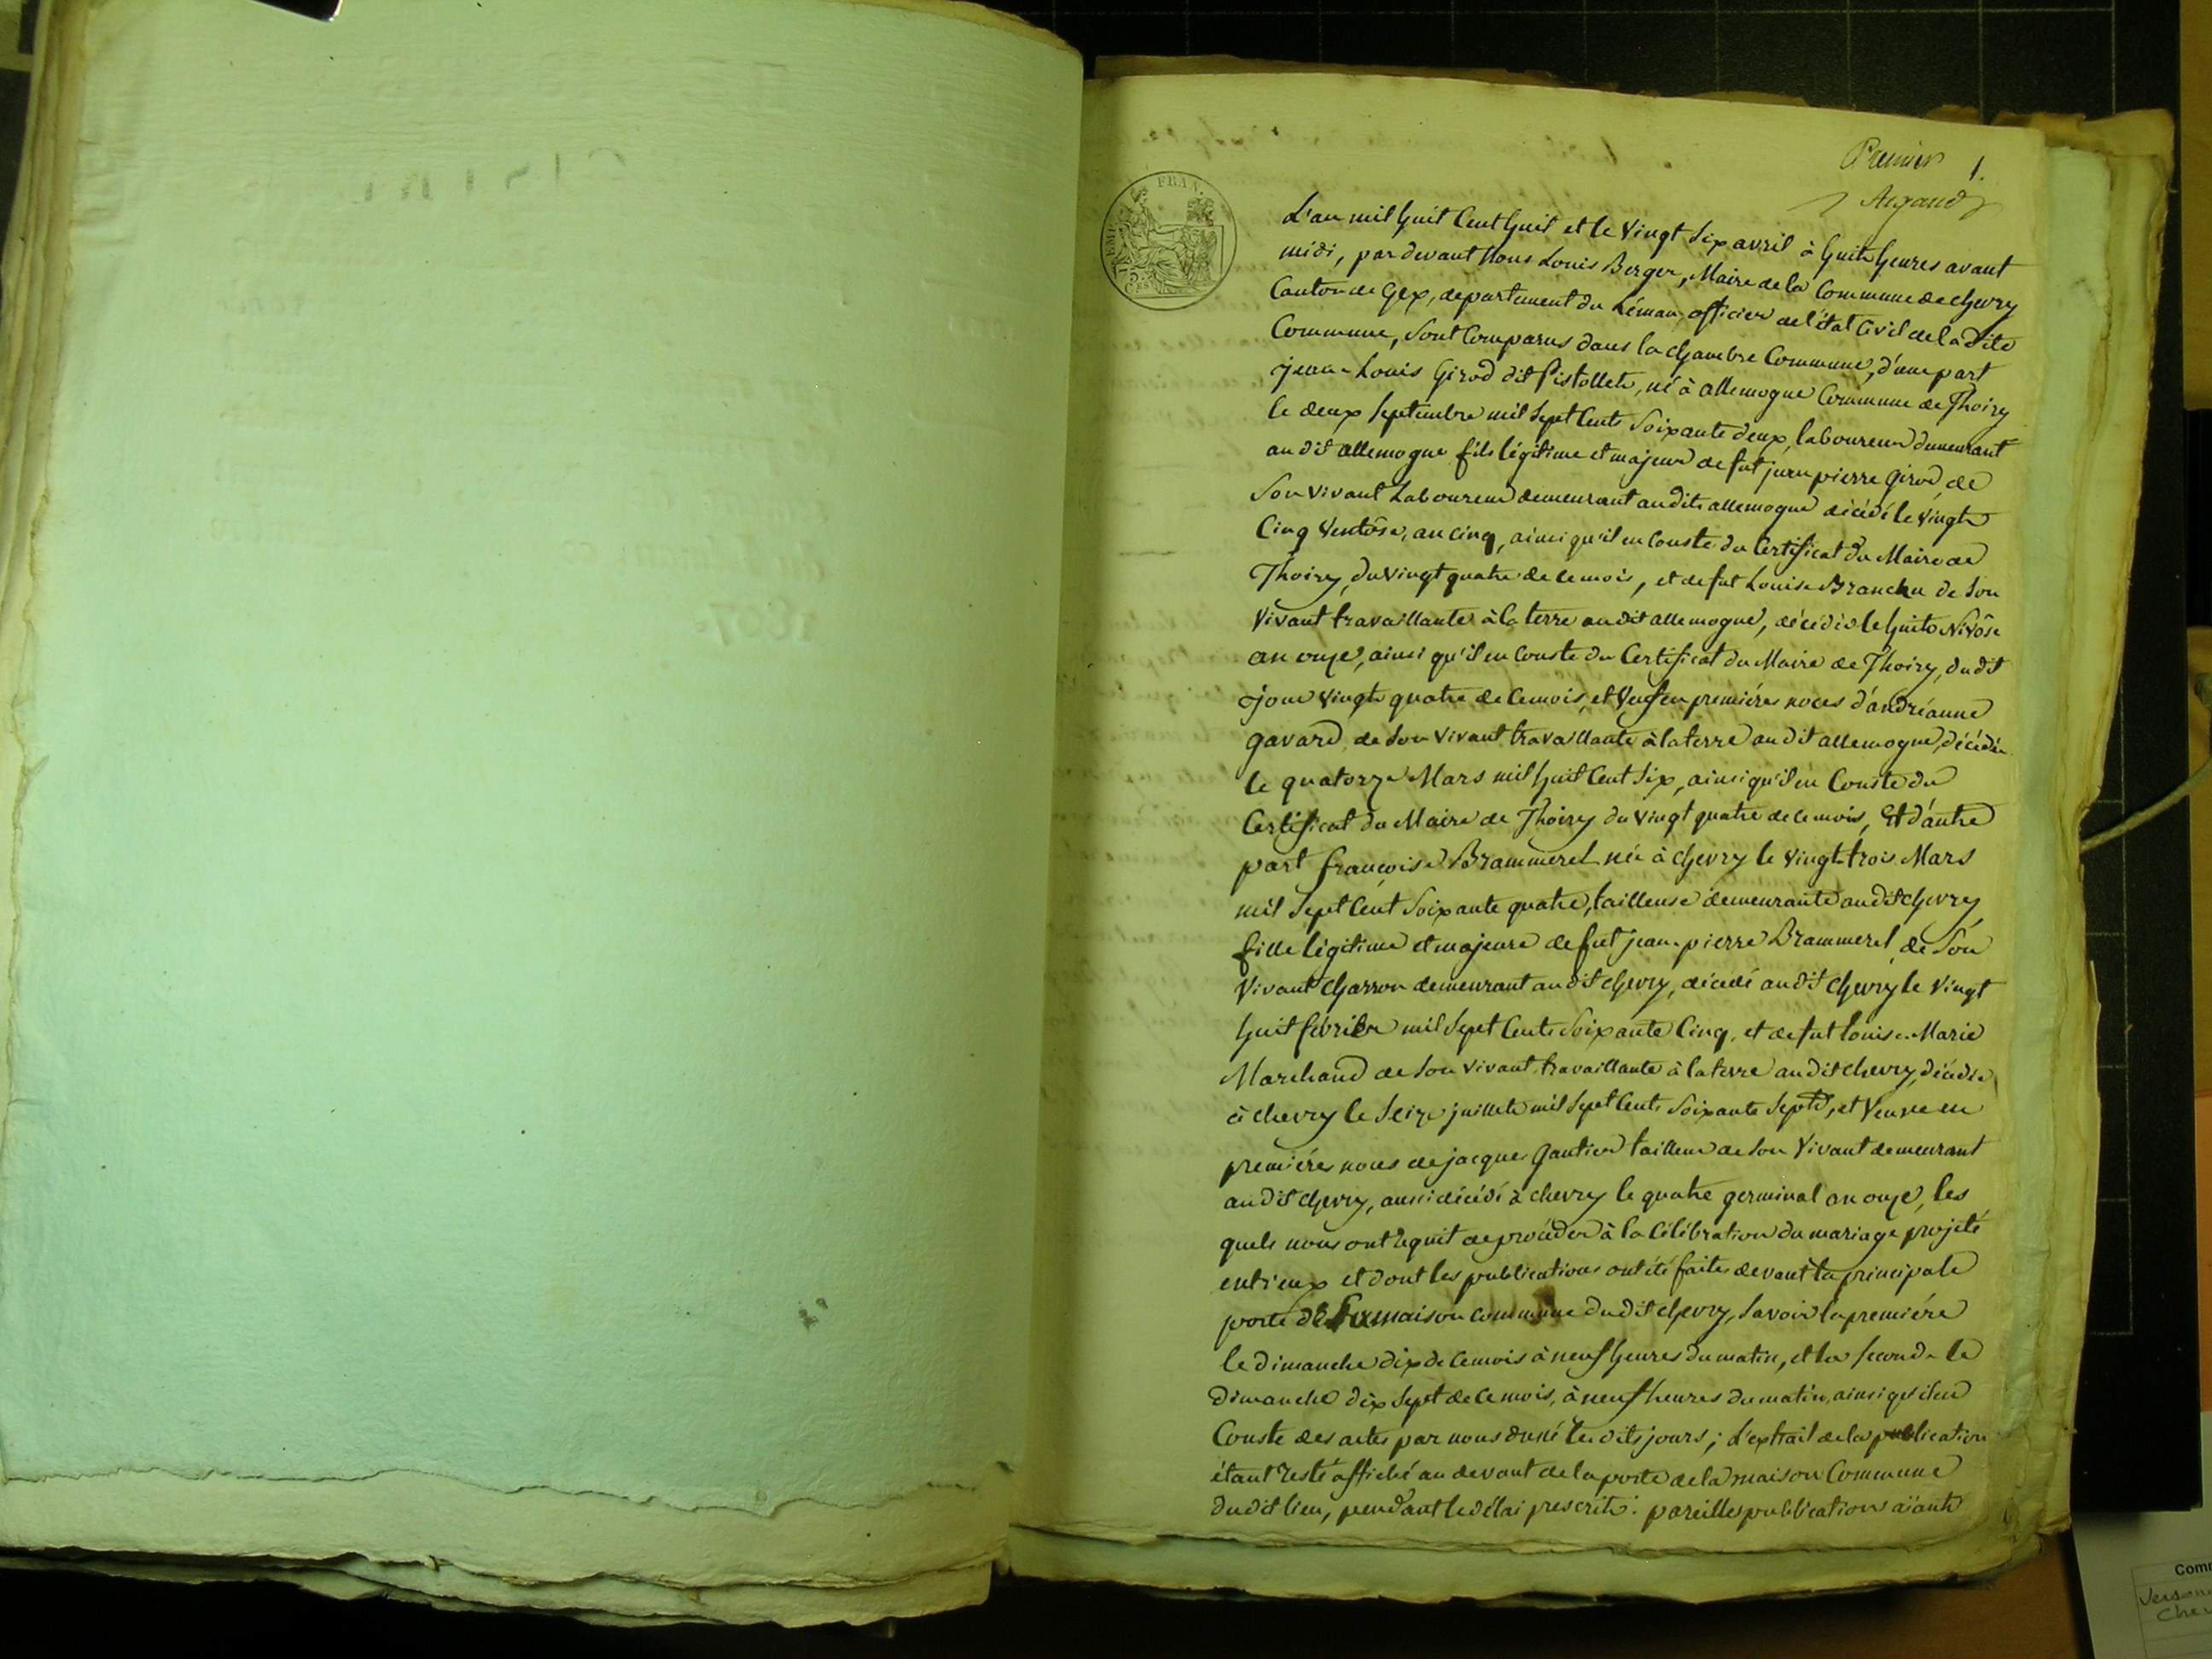 Premier 1.
Argand
FRAN.
L'an mil huit Cent huit et le Vingt Six avril à huit heures avant
midi, par devant Nous Louis Berger, Maire de la Commune de chevry
Canton de Gex, departement du Léman, officier de l'état Civil de la dite
Commune, Sont Comparus dans la chambre Commune, d'une part
jean-Louis Girod dit Pistollet, né à allemogne Commune de Thoiry
le deux Septembre mil Sept Cent Soixante deux, laboureur demeurant
au dit allemogne fils légitime et majeur de fut jean pierre Girod, de
Son vivant Laboureur demeurant au dit allemogne décédé le Vingt
Cinq Ventôse, an cinq, ainsi qu'il en Conste du Certificat du Maire de
Thoiry, du vingt quatre de ce mois, et de fut Louise Branchu de Son
Vivant travaillante à la terre au dit allemogne, décédée le huit Nivôse
an onze, ainsi qu'il en Conste du Certificat du Maire de Thoiry, du dit
jour Vingt quatre de ce mois, et Veuf en premiéres noces d'andréanne
gavard, de Son Vivant travaillante à la terre au dit allemogne, décédée
le quatorze Mars mil huit Cent Six, ainsi qu'il en Conste du
Certificat du Maire de Thoiry du Vingt quatre de ce mois, Et d'autre
part françoise Brammerel née à chevry le Vingt trois Mars
mil Sept Cent Soixante quatre, tailleuse demeurante au dit chevry
fille légitime et majeure de fut jean-pierre Brammerel, de Son
Vivant charron demeurant au dit chevry, décédé au dit chevry le Vingt
huit février mil Sept Cent Soixante Cinq, et de fut Louise-Marie
Marchand de Son vivant travaillante à la terre au dit chevry, décédée
à chevry le Seize juillet mil Sept Cent Soixante Sept, et Veuve en
premiéres noces de jacques Gautier tailleur de Son Vivant demeurant
au dit chevry, aussi décédé à chevry le quatre germinal an onze, les
quels nous ont requit de procéder à la Célébration du mariage projeté
entr'eux et dont les publications ont été faites devant la principale
porte de la maison commune du dit chevry, Savoir la premiére
le dimanche dix de ce mois à neuf heures du matin, et la seconde le
dimanche dix Sept de ce mois, à neuf heures du matin, ainsi qu'il en
Conste des actes par nous dréné les dits jours; L'extrait de la publication
étant resté affiché au devant de la porte de la maison Commune
du dit lieu, pendant le délai prescrit: pareilles publication aïant
Com
Cher